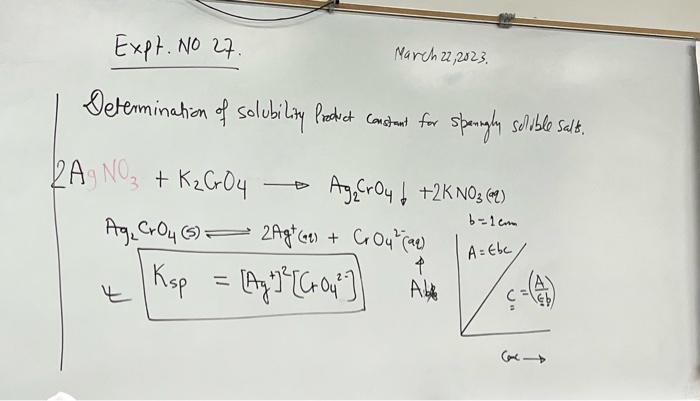 Expt. NO 27.
March 22, 2023.
Determination of solubility Product constant for sparingly soluble salts.
2AgNO₃ + K₂CrO₄ → Ag₂CrO₄↓ + 2KNO₃ (aq)
Ag₂CrO₄ (s) ⇌ 2Ag⁺ (aq) + CrO₄²⁻ (aq)
Ksp = [Ag⁺]² [CrO₄²⁻]
↑
b = 1 cm
A = ϵbc
c = (A/ϵb)
Conc →